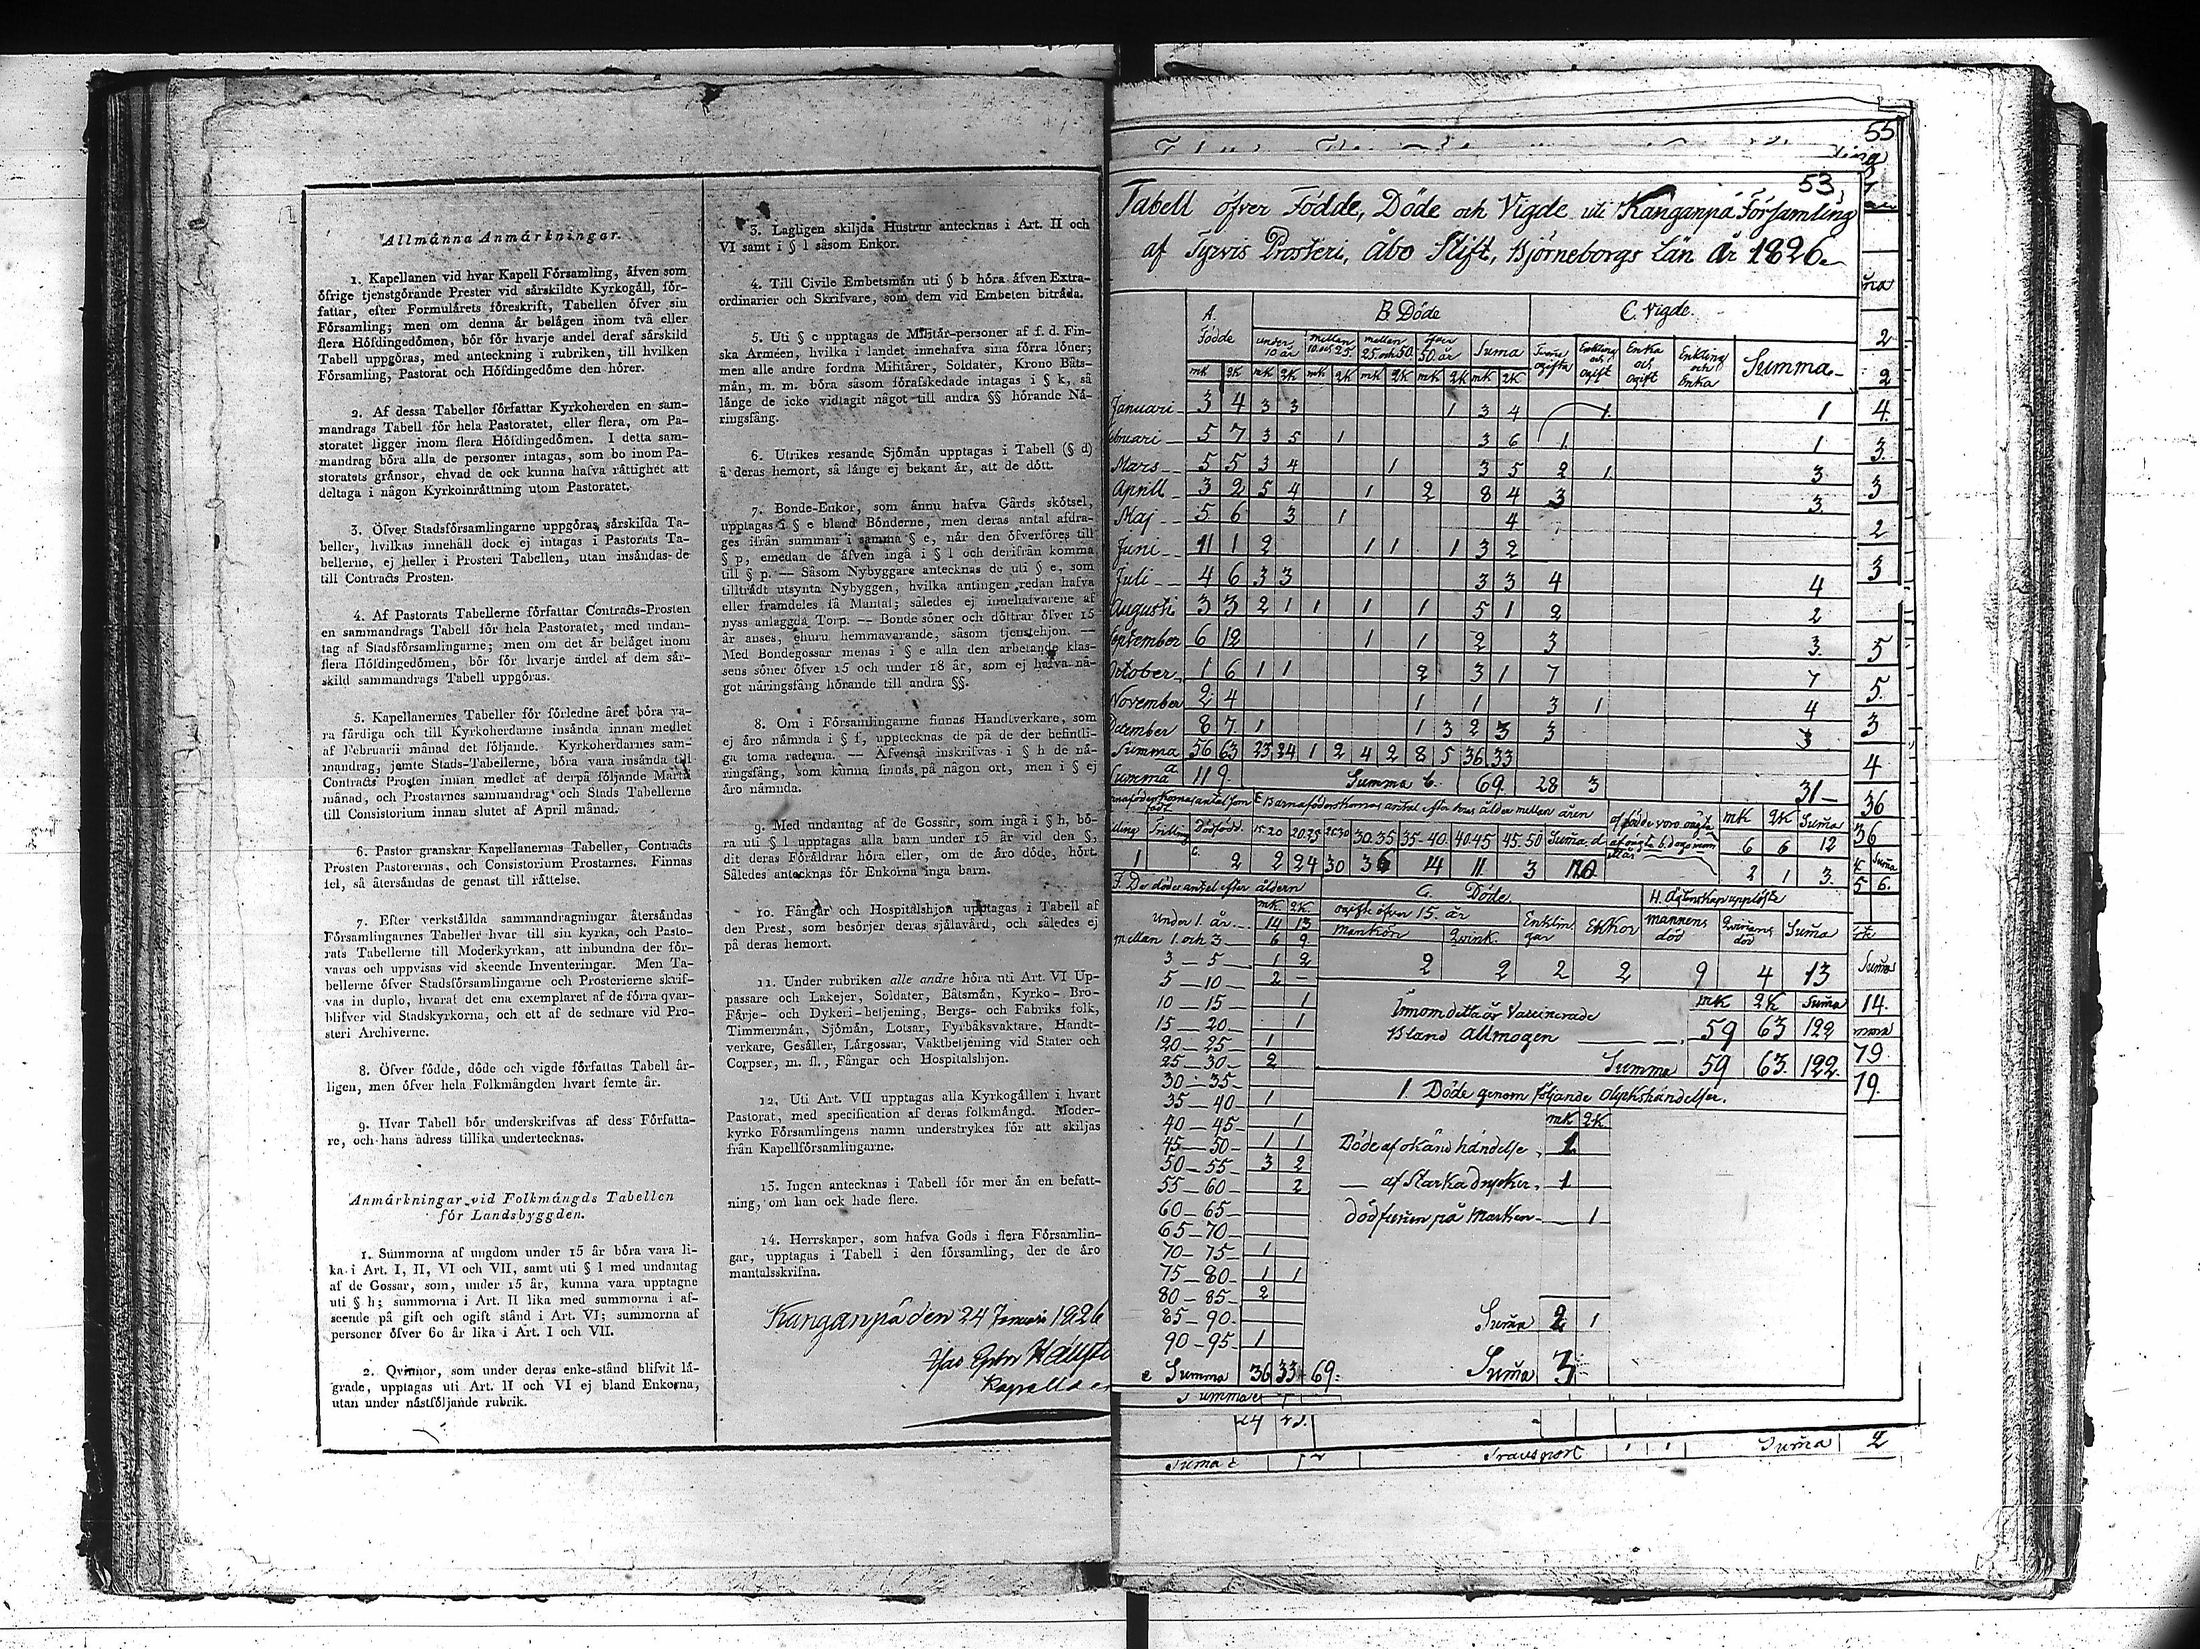 Allmänna Anmärkningar.
1. Kapellanen vid hvar Kapell Församling, äfven som
öfrige tjenstgörande Prester vid särskildte Kyrkogäll, för-
fattar, efter Formulärets föreskrift, Tabellen öfver sin
Församling; men om denna är belägen inom två eller
flera Höfdingedömen, bör för hvarje andel deraf särskild
Tabell uppgöras, med anteckning i rubriken, till hvilken
Församling, Pastorat och Höfdingedöme den hörer.
2. Af dessa Tabeller författar Kyrkoherden en sam-
mandrags Tabell för hela Pastoratet, eller flera, om Pa-
storatet ligger inom flera Höfdingedömen. I detta sam-
mandrag böra alla de personer intagas, som bo inom Pa-
storatets gränsor, ehvad de ock kunna hafva rättighet att
deltaga i någon Kyrkoinrättning utom Pastoratet.
3. Öfver Stadsförsamlingarne uppgöras särskilda Ta-
beller, hvilkas innehåll dock ej intagas i Pastorats Ta-
bellerne, ej heller i Prosteri Tabellen, utan insändas de
till Contracts Prosten.
4. Af Pastorats Tabellerne författar Contracts-Prosten
en sammandrags Tabell för hela Pastoratet, med undan-
tag af Stadsförsamlingarne; men om det är beläget inom
flera Höfdingedömen, bör för hvarje andel af dem sär-
skild sammandrags Tabell uppgöras.
5. Kapellanernes Tabeller för förledne året böra va-
ra färdiga och till Kyrkoherdarne insända innan medlet
af Februarii månad det följande. Kyrkoherdarnes sam-
mandrag, jemte Stads-Tabellerne, böra vara insända till
Contracts Prosten innan medlet af derpå följande Martii
månad, och Prostarnes sammandrag och Stads Tabellerne
till Consistorium innan slutet af April månad.
6. Pastor granskar Kapellanernas Tabeller, Contracts
Prosten Pastorernas, och Consistorium Prostarnes. Finnas
fel, så återsändas de genast till rättelse.
7. Efter verkställda sammandragningar återsändas
Församlingarnes Tabeller hvar till sin kyrka, och Pasto-
rats Tabellerne till Moderkyrkan, att inbundna der för-
varas och uppvisas vid skeende Inventeringar. Men Ta-
bellerne öfver Stadsförsamlingarne och Prosterierne skrif-
vas in duplo, hvaraf det ena exemplaret af de förra qvar-
blifver vid Stadskyrkorna, och ett af de sednare vid Pro-
steri Archiverne.
8. Öfver födde, döde och vigde författas Tabell år-
ligen, men öfver hela Folkmängden hvart femte år.
9. Hvar Tabell bör underskrifvas af dess Författa-
re, och hans adress tillika undertecknas.
Anmärkningar vid Folkmängds Tabellen
för Landsbyggden.
1. Summorna af ungdom under 15 år böra vara li-
ka i Art. I, II, VI och VII, samt uti § l med undantag
af de Gossar, som, under 15 år, kunna vara upptagne
uti § h; summorna i Art. II lika med summorna i af-
seende på gift och ogift stånd i Art. VI; summorna af
personer öfver 60 år lika i Art. I och VII.
2. Qvinnor, som under deras enke-stånd blifvit lä-
grade, upptagas uti Art. II och VI ej bland Enkorna,
utan under nästföljande rubrik.
3. Lagligen skiljda Hustrur antecknas i Art. II och
VI samt i § l såsom Enkor.
4. Till Civile Embetsmän uti § b höra äfven Extra-
ordinarier och Skrifvare, som dem vid Embeten biträda.
5. Uti § c upptagas de Militär-personer af f. d. Fin-
ska Arméen, hvilka i landet innehafva sina förra löner;
men alle andre fordna Militärer, Soldater, Krono Båts-
män, m. m. böra såsom förafskedade intagas i § k, så
länge de icke vidtagit något till andra §§ hörande Nä-
ringsfång.
6. Utrikes resande Sjömän upptagas i Tabell (§ d)
å deras hemort, så länge ej bekant är, att de dött.
7. Bonde-Enkor, som ännu hafva Gårds skötsel,
upptagas i § e bland Bönderne, men deras antal afdra-
ges ifrån summan i samma § e, när den öfverföres till
§ p, emedan de äfven ingå i § l och derifrån komma
till § p. — Såsom Nybyggare antecknas de uti § e, som
tillträdt utsynta Nybyggen, hvilka antingen redan hafva
eller framdeles få Mantal; således ej innehafvarene af
nyss anlaggda Torp. — Bonde söner och döttrar öfver 15
år anses, ehuru hemmavarande, såsom tjenstehjon. —
Med Bondegossar menas i § e alla den arbetande klas-
sens söner öfver 15 och under 18 år, som ej hafva nå-
got näringsfång hörande till andra §§.
8. Om i Församlingarne finnas Handtverkare, som
ej äro nämnda i § f, upptecknas de på de der befintli-
ga toma raderna. — Äfvenså inskrifvas i § h de nä-
ringsfång, som kunna finnas på någon ort, men i § ej
äro nämnda.
9. Med undantag af de Gossar, som ingå i § h, bö-
ra uti § l upptagas alla barn under 15 år vid den §,
dit deras Föräldrar höra eller, om de äro döde, hört.
Således antecknas för Enkorna inga barn.
10. Fångar och Hospitalshjon upptagas i Tabell af
den Prest, som besörjer deras själavård, och således ej
på deras hemort.
11. Under rubriken alle andre höra uti Art. VI Up-
passare och Lakejer, Soldater, Båtsmän, Kyrko- Bro-
Färje- och Dykeri-betjening, Bergs- och Fabriks folk,
Timmermän, Sjömän, Lotsar, Fyrbåksvaktare, Handt-
verkare, Gesäller, Lärgossar, Vaktbetjening vid Stater och
Corpser, m. fl., Fångar och Hospitalshjon.
12. Uti Art. VII upptagas alla Kyrkogällen i hvart
Pastorat, med specification af deras folkmängd. Moder-
kyrko Församlingens namn understrykes för att skiljas
från Kapellförsamlingarne.
13. Ingen antecknas i Tabell för mer än en befatt-
ning, om han ock hade flere.
14. Herrskaper, som hafva Gods i flera Församlin-
gar, upptagas i Tabell i den församling, der de äro
mantalsskrifna.
Kanganpä den 24 Januari 1826
55
53.
Tabell öfver Födde, Döde och Vigde uti Kanganpä Församling
af Tyrvis Prosteri, Åbo Stift, Björneborgs Län År 1826.
A. Födde B. Döde C. Vigde.
under 10 år mellan 10 och 25 mellan 25 och 50 öfver 50 år Suma Enkling och ogift Enka och ogift Enkling och Enka Summa
mk qk mk qk mk qk mk qk mk qk mk qk
Januari 3 4 3 3 1 3 4 1 1
Februari 5 7 3 5 1 3 6 1 1
Mars 5 5 3 4 1 3 5 2 1 3
Aprill 3 2 5 4 1 2 8 4 3 3
Maj 5 6 3 1 4
Juni 11 1 2 1 1 1 3 2
Juli 4 6 3 3 3 3 4 4
Augusti 3 3 2 1 1 1 1 5 1 2 2
September 6 12 1 1 2 3 3
October 1 6 1 1 2 3 1 7 7
November 2 4 1 1 3 1 4
December 8 7 1 1 3 2 3 3 3
Summa 56 63 23 24 1 2 4 2 8 5 36 33
Summa a 119 Summa b. 69. 28 3 31
E Barnaföderskornas antal efter deras ålder mellan åren
mk qk Suma
Dödfödd. 15-20 20-25 25-30 30-35 35-40 40-45 45-50 Suma d
6 6 12
1 2 2 24 30 36 14 11 3 120
2 1 3.
F. De dödes antal efter åldern G. Döde. H. Äktenskap upplöste
mk qk
Under 1. år 14 13
mellan 1. och 3 6 9
3 — 5 1 2
5 — 10 2 —
10 — 15 1
15 — 20 1
20 — 25 1
25 — 30 2
30 — 35
35 — 40 1
40 — 45 1
45 — 50 1 1
50 — 55 3 2
55 — 60 2
60 — 65
65 — 70
70 — 75 1
75 — 80 1 1
80 — 85 2
85 — 90
90 — 95 1
e Summa 36 33 69
ogifte öfver 15. år Enklingar Enkor mannens död qvinnans död Suma
mankön qvink.
2 2 2 2 9 4 13
Inom detta år Vaccinerade mk qk Suma
Bland Allmogen 59 63 122
Summa 59 63. 122.
I. Döde genom följande Olyckshändelser.
mk qk
Döde af okänd händelse 1
— af Starka drycker 1
död funen på Marken 1
Suma 2 1
Suma 3
Transport Suma 2